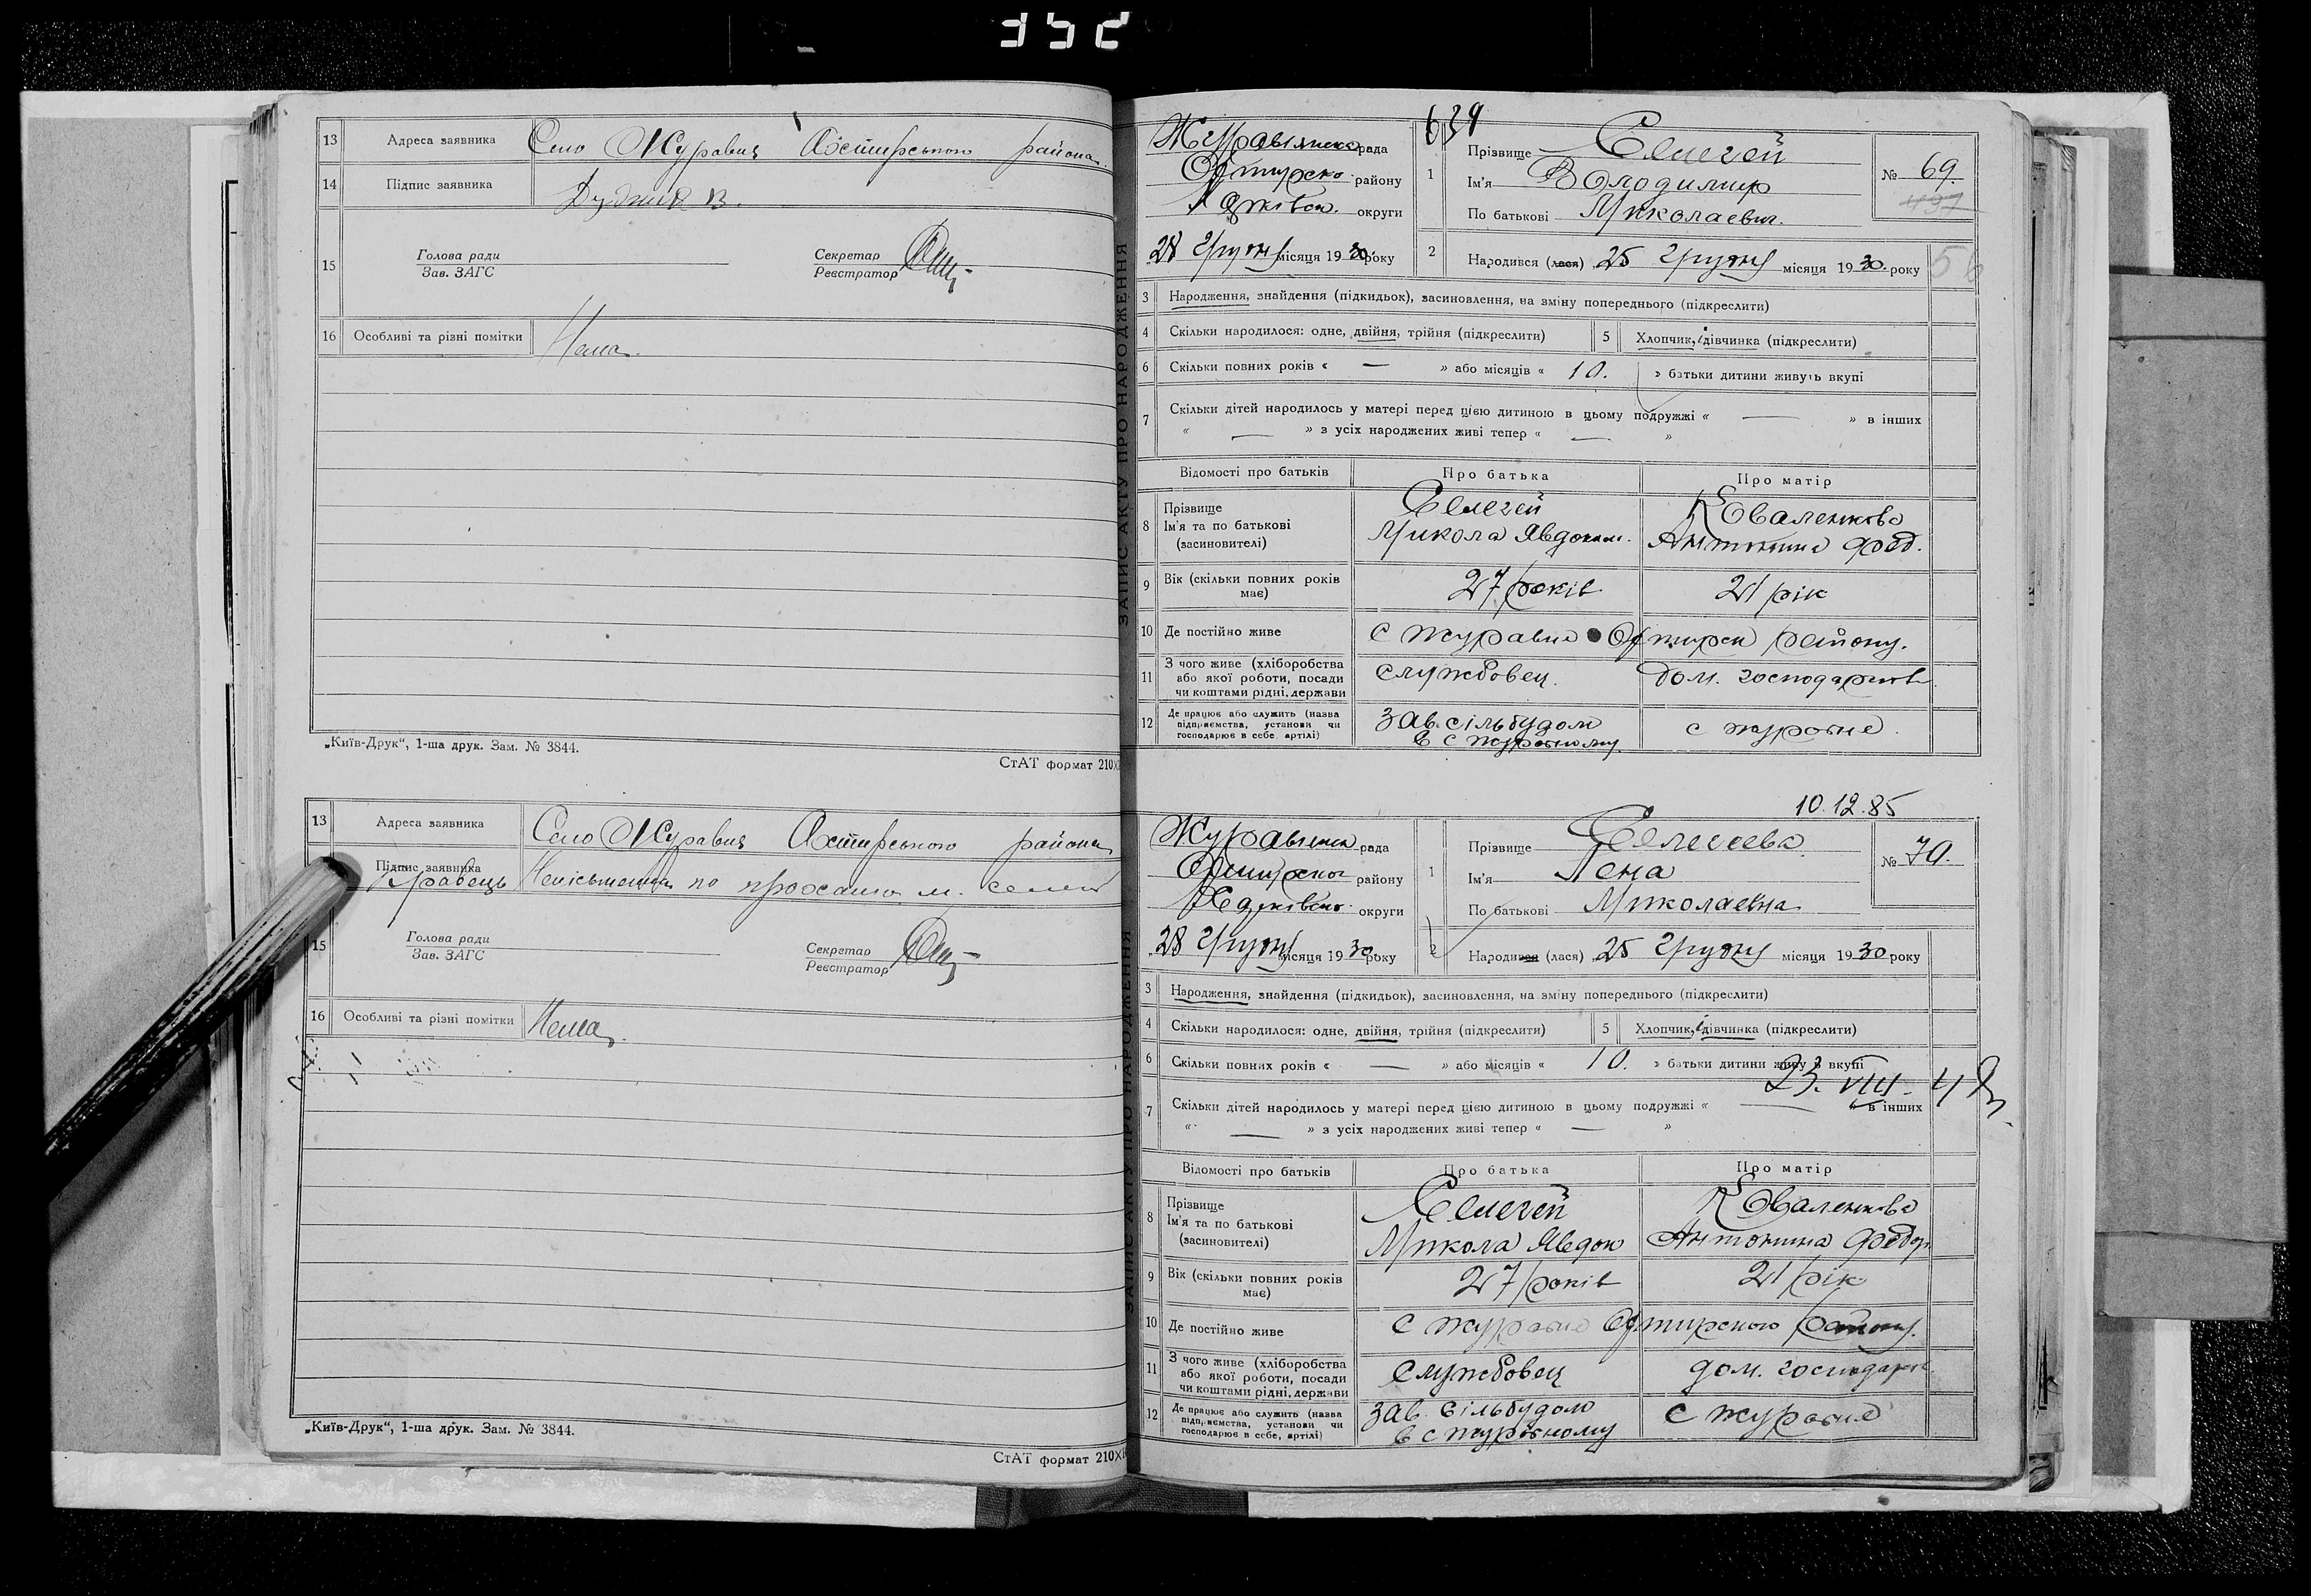 352
13 Адреса заявника Село Журавна Охтирського района.
14 Підпис заявника Дудник В.
15 Голова ради
Зав. ЗАГС
Секретар
Реєстратор
16 Особливі та різні помітки Нема.
„Київ-Друк“, 1-ша друк. Зам. № 3844.
СтАТ формат 210×
13 Адреса заявника Село Журавна Охтирського района
Підпис заявника Кравець
15 Голова ради
Зав. ЗАГС
Секретар
Реєстратор
16 Особливі та різні помітки Нема.
„Київ-Друк“, 1-ша друк. Зам. № 3844.
СтАТ формат 210×
ЗАПИС АКТУ ПРО НАРОДЖЕННЯ
639
рада
району
округи
28 грудня місяця 1930 року
1 Прізвище Селегей
Ім'я Володимир
По батькові Миколаевич.
№ 69.
497
2 Народився (лася) 25 грудня місяця 1930. року
56
3 Народження, знайдення (підкидьок), засиновлення, на зміну попереднього (підкреслити)
4 Скільки народилося: одне, двійня, трійня (підкреслити) 5 Хлопчик, і дівчинка (підкреслити)
6 Скільки повних років « — » або місяців « 10. » батьки дитини живуть вкупі
7 Скільки дітей народилось у матері перед цією дитиною в цьому подружжі « — » в інших
« — » з усіх народжених живі тепер « — »
Відомості про батьків Про батька Про матір
8 Прізвище Селегей Коваленкова
Ім'я та по батькові Микола Явдоким. Антонина Фед.
(засиновителі)
9 Вік (скільки повних років має) 27 років 21 рік
10 Де постійно живе с Журавне Охтирск району.
11 З чого живе (хліборобства або якої роботи, посади чи коштами рідні, держави службовец. дом. господарств
12 Де працює або служить (назва підприємства, установи чи господарює в себе, артілі) Зав. сільбудом с Журавне.
в с Журавному
10.12.85
ЗАПИС АКТУ ПРО НАРОДЖЕННЯ
рада
району
округи
28 грудня місяця 1930 року
1 Прізвище Селегеева
Ім'я Лена
По батькові Миколаевна
№ 70.
2 Народився (лася) 25 грудня місяця 1930 року
3 Народження, знайдення (підкидьок), засиновлення, на зміну попереднього (підкреслити)
4 Скільки народилося: одне, двійня, трійня (підкреслити) 5 Хлопчик, і дівчинка (підкреслити)
6 Скільки повних років « — » або місяців « 10. » батьки дитини живуть вкупі
23. VIII-
7 Скільки дітей народилось у матері перед цією дитиною в цьому подружжі « — » в інших
« — » з усіх народжених живі тепер « — »
Відомості про батьків Про батька Про матір
8 Прізвище Селегей Коваленкова
Ім'я та по батькові Микола Явдок Антонина Федор
(засиновителі)
9 Вік (скільки повних років має) 27 років 21 рік
10 Де постійно живе с Журавне Охтирского району.
11 З чого живе (хліборобства або якої роботи, посади чи коштами рідні, держави службовец дом. господарк
12 Де працює або служить (назва підприємства, установи чи господарює в себе, артілі) Зав. сільбудом с Журавне
в с Журавному